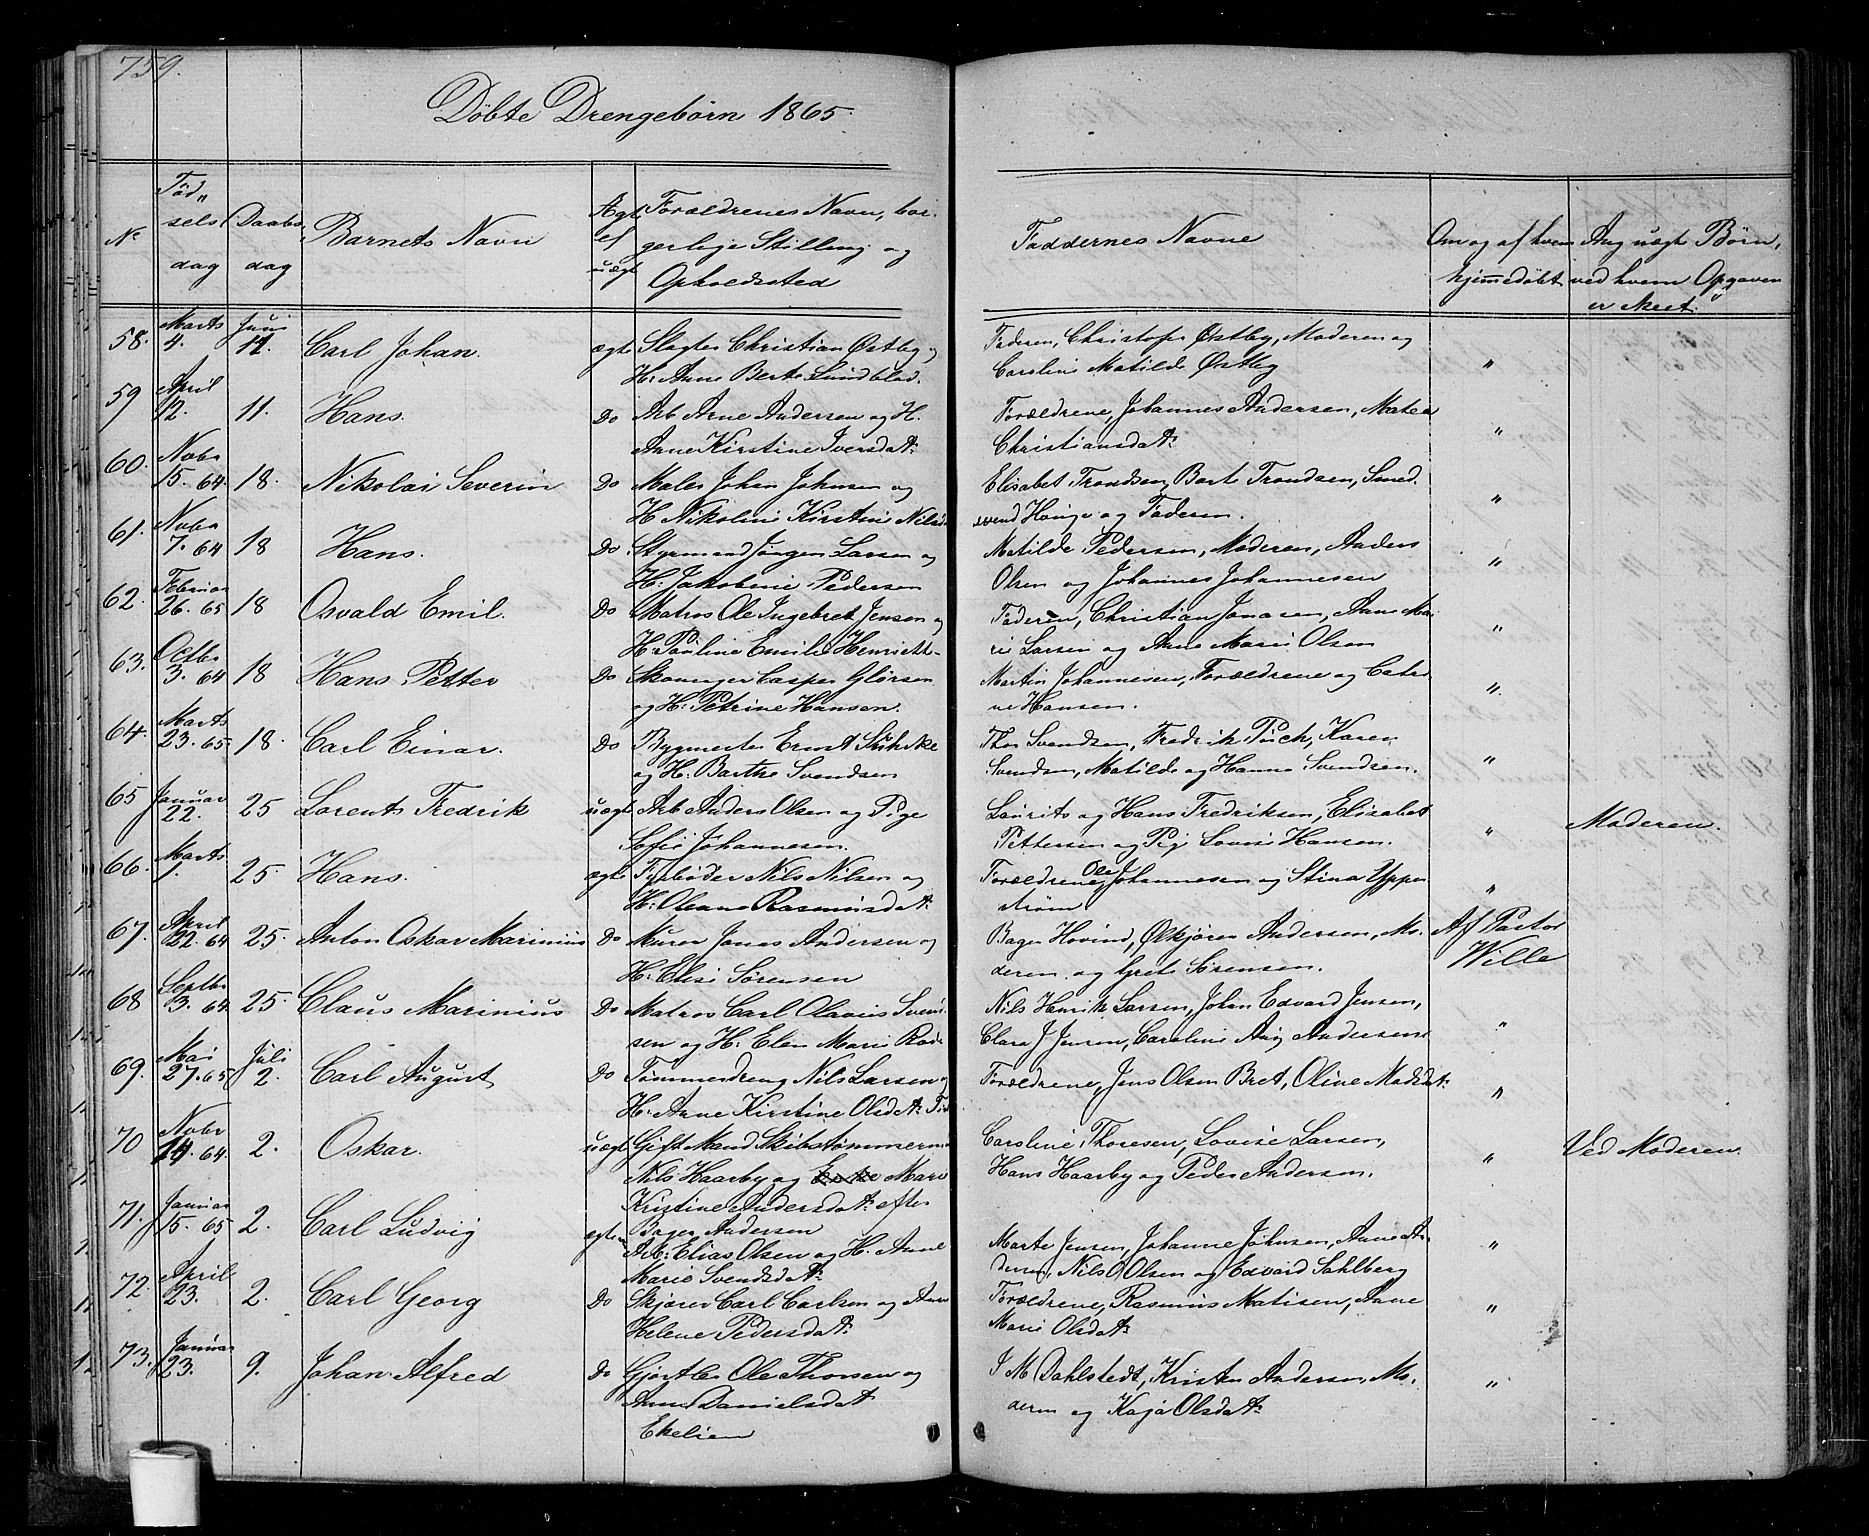 759.
Döbte Drengebörn 1865.
No
Födselsdag
Daabsdag
Barnets Navn
Ægt el uægt
Forældrenes Navn, borgerlige Stilling og Opholdssted
Faddernes Navne
Om og af hvem hjemmedöbt
Ang uægte Börn, ved hvem Opgaven er skeet.
58. Marts 4. Juni 11. Carl Johan. ægte Slagter Christian Östby og Faderen, Christofer Östby, Moderen og
H: Anne Berte Lundblad. Caroline Matilde Östby "
59 April 12. 11. Hans. Do Arb Arne Andersen og H. Forældrene, Johannes Andersen, Matea
Anne Kirstine Iversdat: Christiansdat: "
60. Novbr 15. 64. 18. Nikolai Severin Do Maler Johan Johnsen og Elisabet Trondsen, Bart Trondsen, Smed
H Nikoline Kirstine Nils svend Hauge og Faderen. "
61. Novbr 7. 64 18 Hans. Do Styrmand Jörgen Larsen og Matilde Pedersen, Moderen, Anders
H: Jakobine Pedersen Olsen og Johannes Johannesen "
62. Februar 26. 65 18 Osvald Emil. Do Matros Ole Ingebret Jensen og Faderen, Christian Jonasen, Anne Ma-
H: Pauline Emilie Henriett- rie Larsen og Anne Marie Olsen "
63. Octbr 3. 64 18 Hans Petter Do Skomager Casper Glörsen Martin Johannesen, Forældrene og Catri
og H: Petrine Hansen. ne Hansen. "
64. Marts 23. 65. 18. Carl Einar. Do Bygmester Ernst Thor Svendsen, Fredrik Puch, Karen
og H: Barthe Svendsen Svendsen, Matilde og Hanna Svendsen. "
65 Januar 22. 25 Lorents Fredrik uægt Arb Anders Olsen og Pige Laurits og Hans Fredriksen, Elisabet
Sofie Johannesen. Pettersen og Pige Lovise Hansen. " Moderen.
66. Marts 1. 25. Hans. ægte Fyrböder Nils Nilsen og Forældrene, Ole Johannesen og Stina Ypper
H: Oleane Rasmusdat: ström "
67. April 22. 64 25. Anton Oskar Marinius Do Murer Jonas Andersen og Bager Hovind, Andersen, Mo- Af Pastor
H: Elise Sörensen deren og Grete Sörensen. Wille
68 Septbr 3. 64. 25. Claus Marinius Do Matros Carl Olavus Svend Nils Henrik Larsen, Johan Edvard Jensen,
sen og H: Elen Marie Clara J Jensen, Caroline Aug Andersens "
69. Mai 27. 65 Juli 2. Carl August Do Tømmerdreng Nils Larsen og Forældrene, Jens Olsen Bret, Oline Madsdat:
H: Anne Kirstine Olsdat: "
70 Novbr 14. 64. 2. Oskar. uægt Gift Mand Skibstömmerm Caroline Thoresen, Lovise Larsen,
Nils Haarby og Mare Hans Haarby og Peder Andersen. " Ved Moderen
Kristine Andersdat: efter
Bager Andersen
71. Januar 15. 65 2. Carl Ludvig ægte Arb: Elias Olsen og H. Anne Marte Jensen, Johanne Johnsen, Anne An
Marie Svendsdat: dersen, Nils O Olsen og Edvard Sahlberg "
72. April 23. 2. Carl Georg Do Skjærer Carl Carlsen og Anne Forældrene, Rasmus Matisen, Anne
Helene Pedersdat: Marie Olsdat: "
73. Januar 23. 9. Johan Alfred Do Gjørtler Ole Thorsen og J M Dahlstedt, Kristen Andersen, Mo.
Anne Danielsdat deren og Kaja Olsdat: "
Ekelien